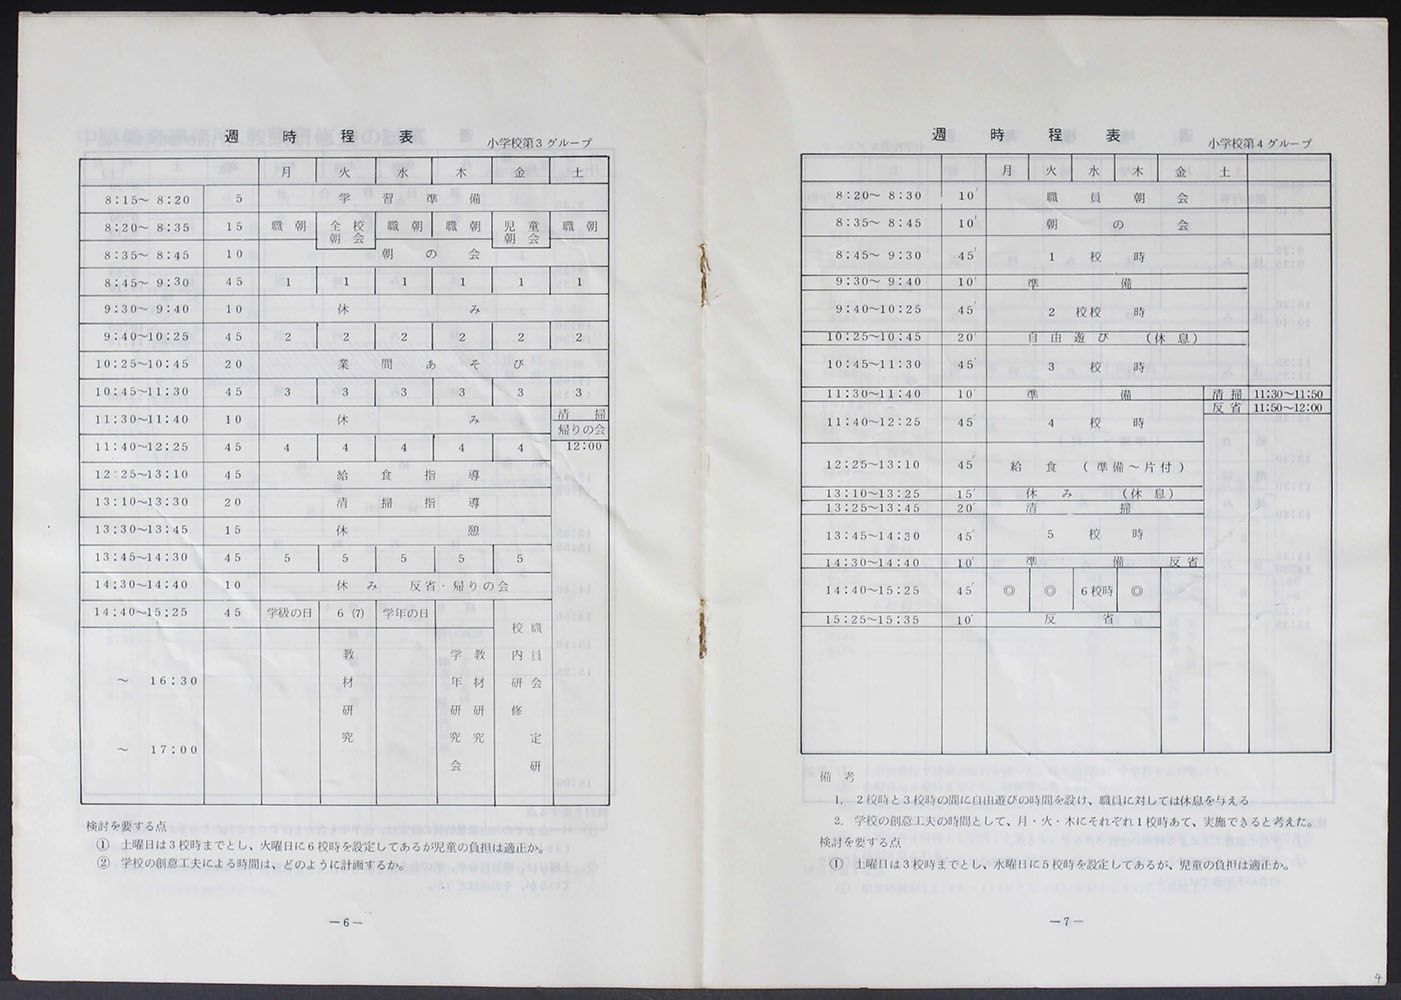 週時程表
小学校第3グループ
月 火 水 木 金 土
8:15～ 8:20 5 学習準備
8:20～ 8:35 15 職朝 全校朝会 職朝 職朝 児童朝会 職朝
8:35～ 8:45 10 朝の会
8:45～ 9:30 45 1 1 1 1 1 1
9:30～ 9:40 10 休み
9:40～10:25 45 2 2 2 2 2 2
10:25～10:45 20 業間あそび
10:45～11:30 45 3 3 3 3 3 3
11:30～11:40 10 休み 清掃
帰りの会
11:40～12:25 45 4 4 4 4 4 12:00
12:25～13:10 45 給食指導
13:10～13:30 20 清掃指導
13:30～13:45 15 休憩
13:45～14:30 45 5 5 5 5 5
14:30～14:40 10 休み 反省・帰りの会
14:40～15:25 45 学級の日 6(7) 学年の日
～ 16:30
～ 17:00
教材研究
学年研究会
教材研究
校内研修
職員会定研
検討を要する点
① 土曜日は3校時までとし、火曜日に6校時を設定してあるが児童の負担は適正か。
② 学校の創意工夫による時間は、どのように計画するか。
—6—
週時程表
小学校第4グループ
月 火 水 木 金 土
8:20～ 8:30 10′ 職員朝会
8:35～ 8:45 10′ 朝の会
8:45～ 9:30 45′ 1校時
9:30～ 9:40 10′ 準備
9:40～10:25 45′ 2校校時
10:25～10:45 20′ 自由遊び (休息)
10:45～11:30 45′ 3校時
11:30～11:40 10′ 準備 清掃 11:30～11:50
反省 11:50～12:00
11:40～12:25 45′ 4校時
12:25～13:10 45′ 給食(準備～片付)
13:10～13:25 15′ 休み (休息)
13:25～13:45 20′ 清掃
13:45～14:30 45′ 5校時
14:30～14:40 10′ 準備 反省
14:40～15:25 45′ ◎ ◎ 6校時 ◎
15:25～15:35 10′ 反省
備考
1. 2校時と3校時の間に自由遊びの時間を設け、職員に対しては休息を与える
2. 学校の創意工夫の時間として、月・火・木にそれぞれ1校時あて、実施できると考えた。
検討を要する点
① 土曜日は3校時までとし、水曜日に5校時を設定してあるが、児童の負担は適正か。
—7—
4